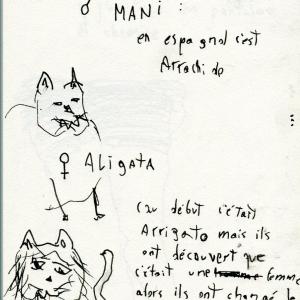 ♂ MANI :
en espagnol c'est
Arrachide
♀ ALIGATA
(au début c'était
Arrigato mais ils
ont découvert que
c'était une femme
alors ils ont changé